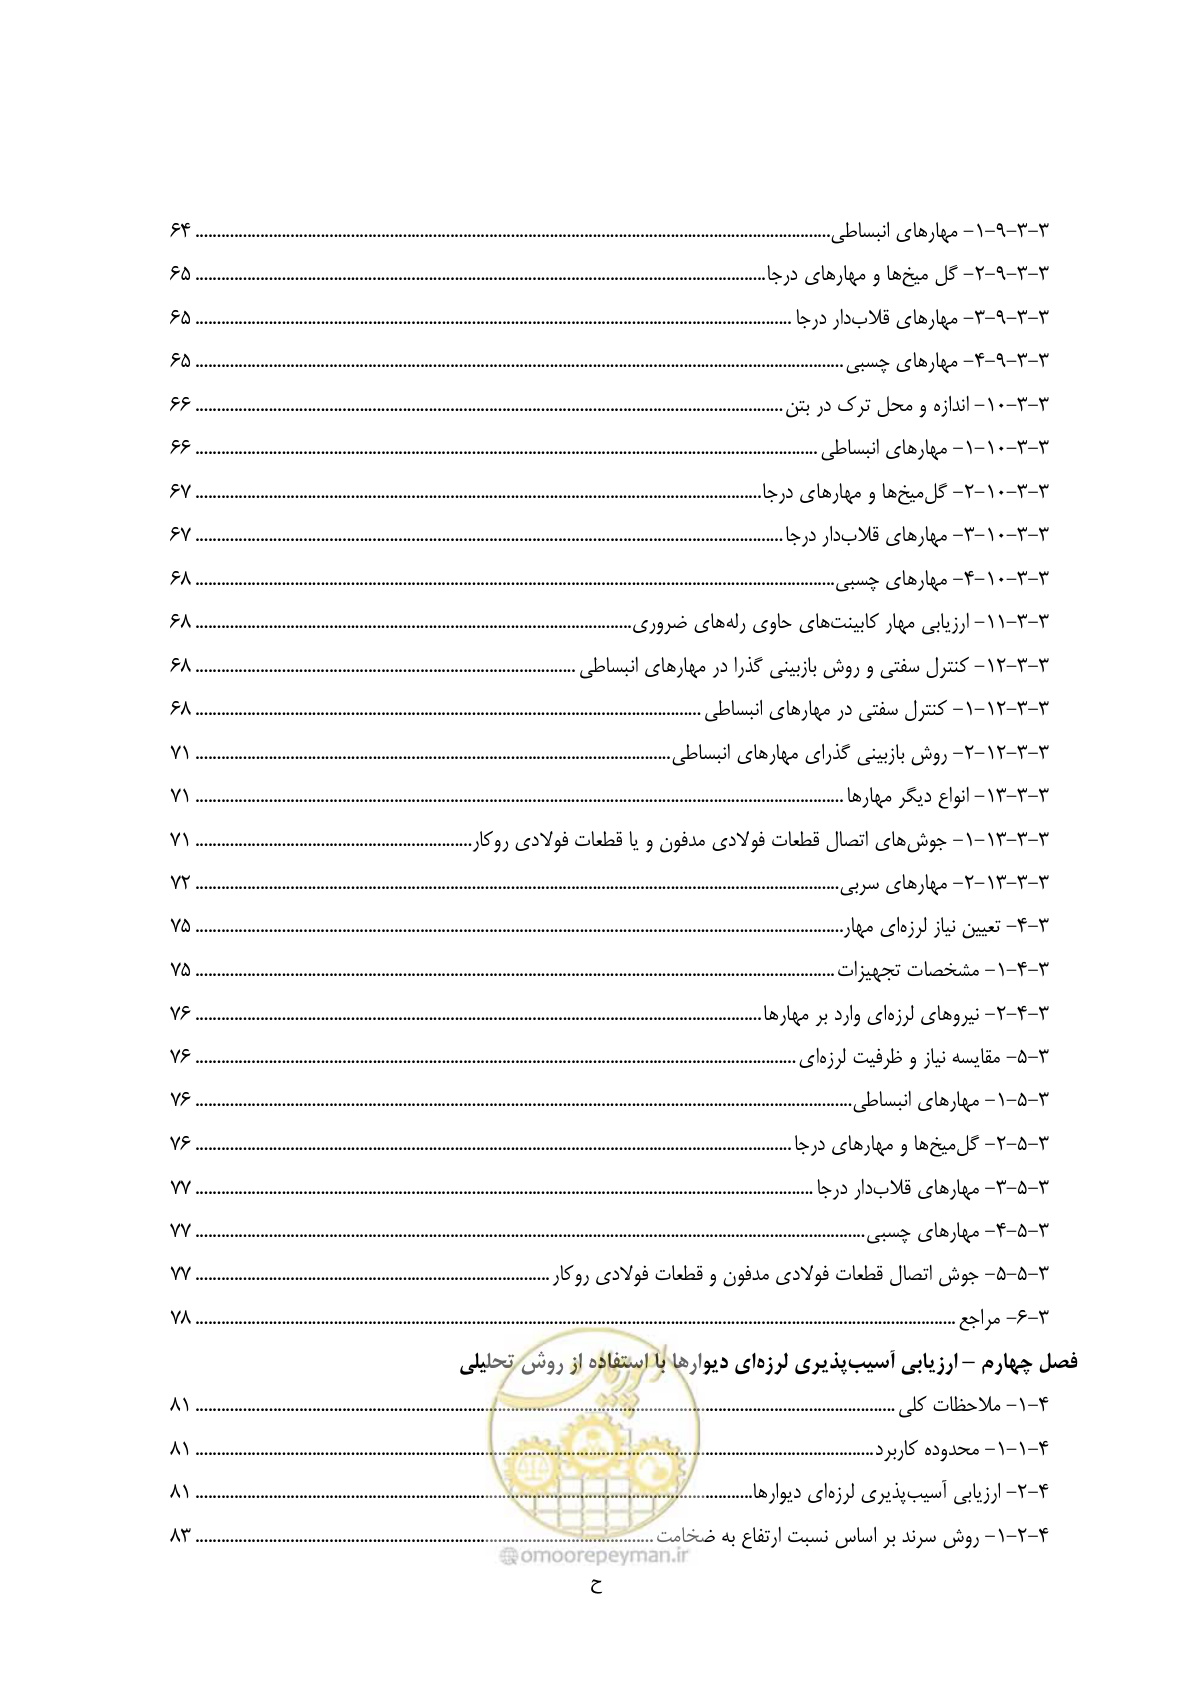 ۳-۳-۹-۱- مهارهای انبساطی ........ ۶۴
۳-۳-۹-۲- گل میخ‌ها و مهارهای درجا ........ ۶۵
۳-۳-۹-۳- مهارهای قلاب‌دار درجا ........ ۶۵
۳-۳-۹-۴- مهارهای چسبی ........ ۶۵
۳-۳-۱۰- اندازه و محل ترک در بتن ........ ۶۶
۳-۳-۱۰-۱- مهارهای انبساطی ........ ۶۶
۳-۳-۱۰-۲- گل‌میخ‌ها و مهارهای درجا ........ ۶۷
۳-۳-۱۰-۳- مهارهای قلاب‌دار درجا ........ ۶۷
۳-۳-۱۰-۴- مهارهای چسبی ........ ۶۸
۳-۳-۱۱- ارزیابی مهار کابینت‌های حاوی رله‌های ضروری ........ ۶۸
۳-۳-۱۲- کنترل سفتی و روش بازبینی گذرا در مهارهای انبساطی ........ ۶۸
۳-۳-۱۲-۱- کنترل سفتی در مهارهای انبساطی ........ ۶۸
۳-۳-۱۲-۲- روش بازبینی گذرای مهارهای انبساطی ........ ۷۱
۳-۳-۱۳- انواع دیگر مهارها ........ ۷۱
۳-۳-۱۳-۱- جوش‌های اتصال قطعات فولادی مدفون و یا قطعات فولادی روکار ........ ۷۱
۳-۳-۱۳-۲- مهارهای سربی ........ ۷۲
۳-۴- تعیین نیاز لرزه‌ای مهار ........ ۷۵
۳-۴-۱- مشخصات تجهیزات ........ ۷۵
۳-۴-۲- نیروهای لرزه‌ای وارد بر مهارها ........ ۷۶
۳-۵- مقایسه نیاز و ظرفیت لرزه‌ای ........ ۷۶
۳-۵-۱- مهارهای انبساطی ........ ۷۶
۳-۵-۲- گل‌میخ‌ها و مهارهای درجا ........ ۷۶
۳-۵-۳- مهارهای قلاب‌دار درجا ........ ۷۷
۳-۵-۴- مهارهای چسبی ........ ۷۷
۳-۵-۵- جوش اتصال قطعات فولادی مدفون و قطعات فولادی روکار ........ ۷۷
۳-۶- مراجع ........ ۷۸
فصل چهارم – ارزیابی آسیب‌پذیری لرزه‌ای دیوارها با استفاده از روش تحلیلی
۴-۱- ملاحظات کلی ........ ۸۱
۴-۱-۱- محدوده کاربرد ........ ۸۱
۴-۲- ارزیابی آسیب‌پذیری لرزه‌ای دیوارها ........ ۸۱
۴-۲-۱- روش سرند بر اساس نسبت ارتفاع به ضخامت ........ ۸۳
@omoorepeyman.ir
ح